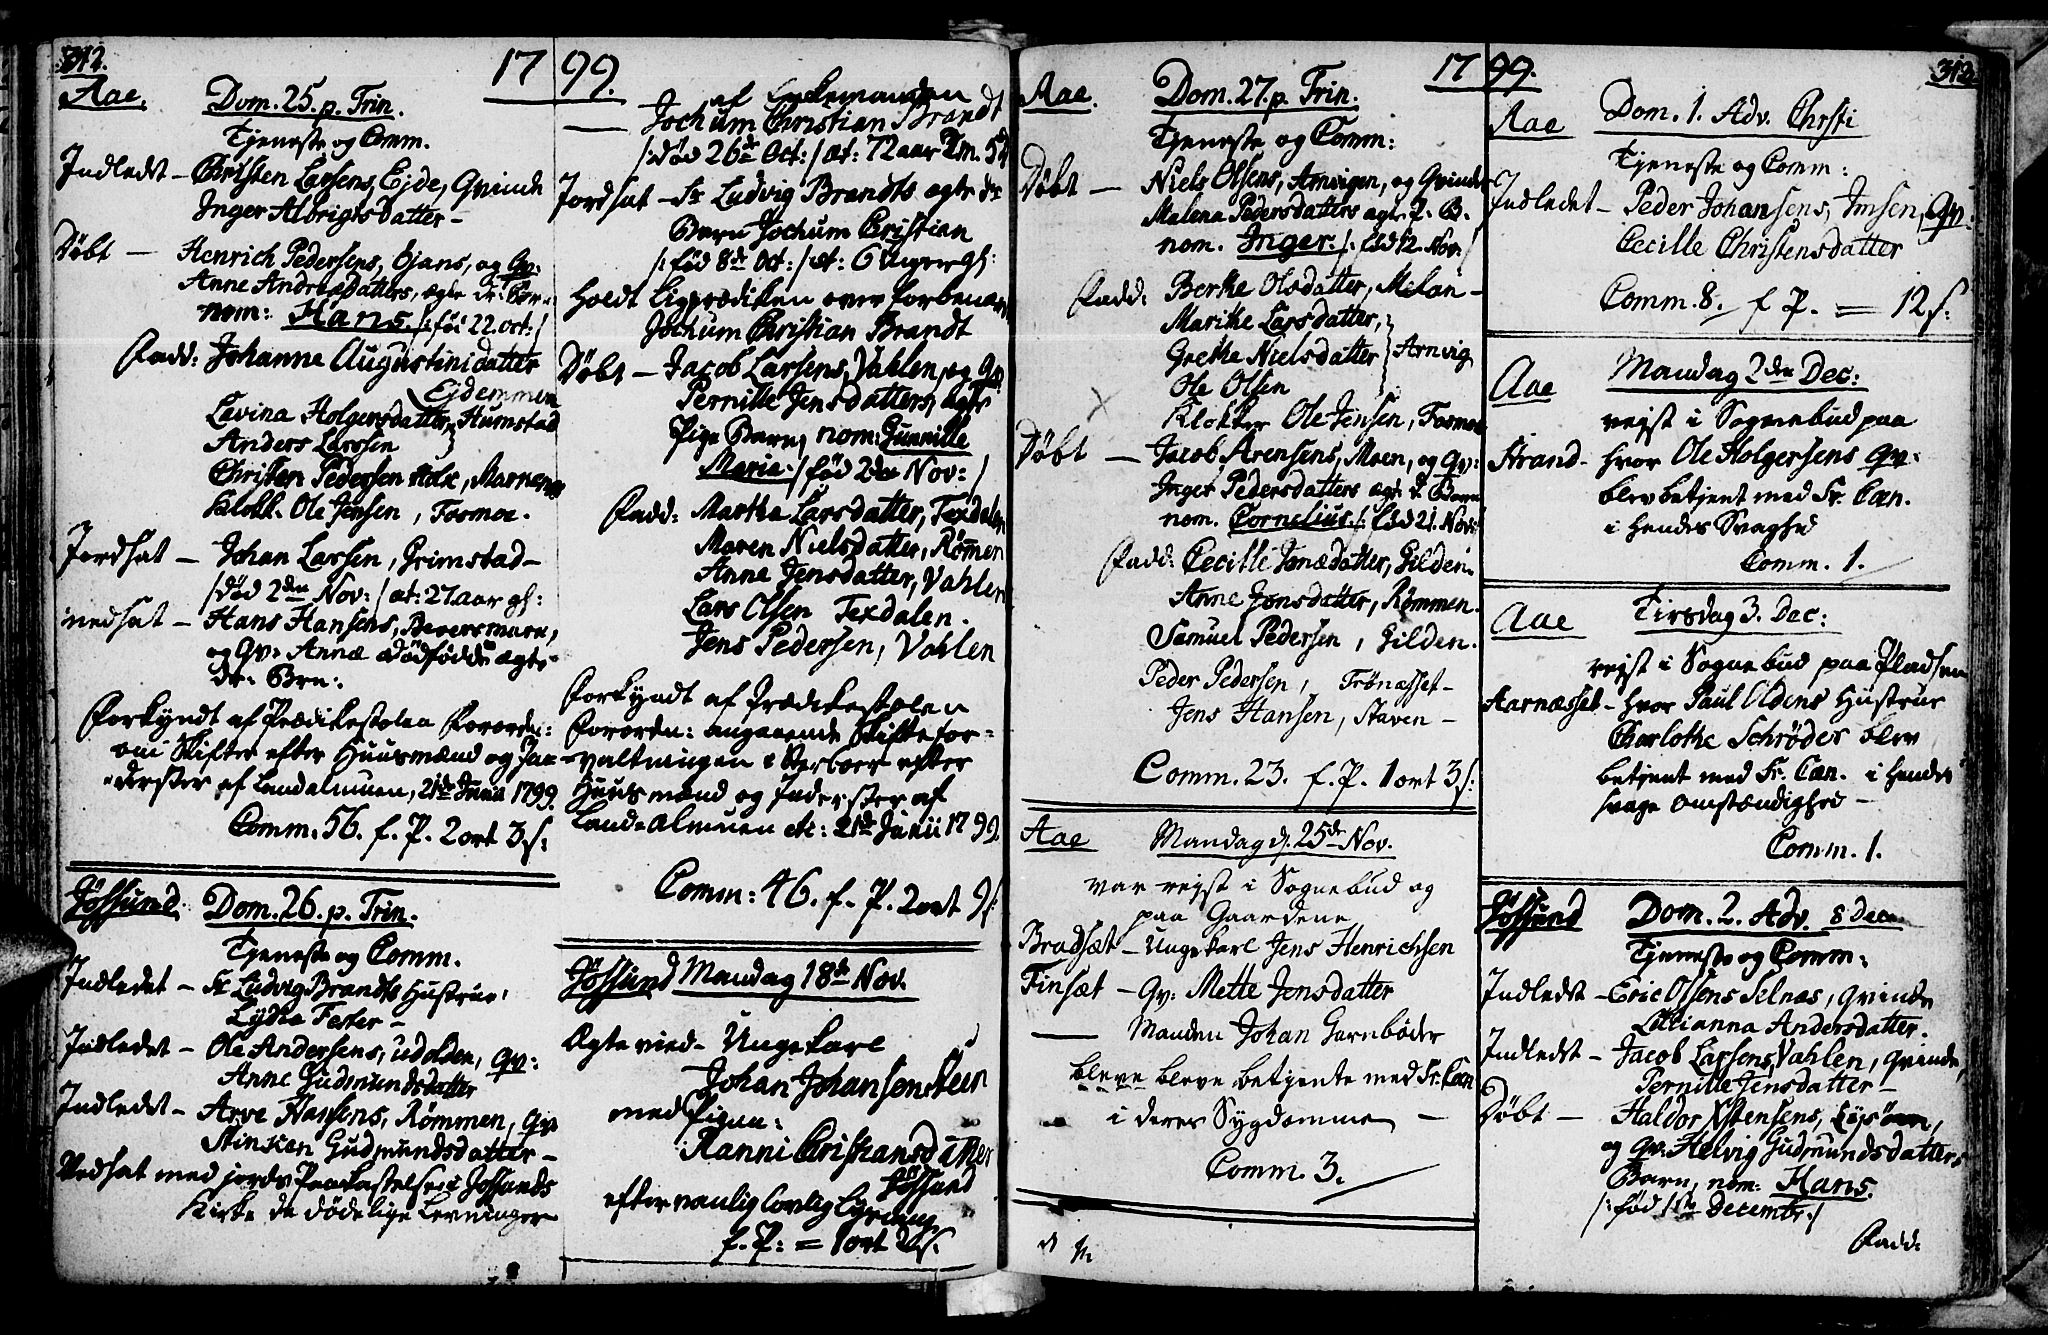 312.
17 99.
Aae. Dom. 25. p. Trin.
Tjeneste og Comm.
Indledet - Christen Larsens, Ejde, Qvinde
Inger Albrigtsdatter -
Døbt - Henrich Pedersens, Ejans, og Qv:
Anne Andreædatters, ægte Dr: Barn
nom: Hans. /: fød 22. oct: /
Fadd: Johanne Augustinidatter
Ejdemmen
Lavina Holgersdatter, Humstad
Anders Larssen
Christen Pedersen Holx,
Klokk. Ole Jensen, Fosmoe.
Jordsat - Johan Larsen, Grimstad -
/død 2den Nov: / æt: 27 aar gl:
nedsat - Hans Hansens,
og Qv: Annæ dødfødde ægte
Dr: Brn:
Forkyndt af Prædikestolen Forordn:
om Skifter efter Huusmænd og In-
derster af Landalmuen, 21de Junii 1799.
Comm. 56. f. P. 2 ort 3 s:
Jøssund. Dom. 26. p. Trin.
Tjeneste og Comm.
Indledet - Sr. Ludvig Brandts Hustrue,
Lydia Fester -
Indledet - Ole Andersens, Udolden, Qv:
Anne Gudmundsdatter
Indledet - Arve Hansens, Rømmen, Qv
Stinken Gudmundsdatter -
Nedsat med jords Paakastelse i Jøssunds
Kirke de dødelige Levninger
af
- Jochum Christian Brandt
/: død 26de Oct: / æt: 72 aar
Jordsat - Sr. Ludvig Brandts ægte Dr
Barn Jochum Christian
/: fød 8de Oct: / æt: 6 Uger gl:
Holdt Ligprædiken over forbenævn
Jochum Christian Brandt
Døbt - Jacob Larsens, Vahlen, og Qv
Pernille Jensdatters, ægte
Pige Barn, nom: Gunnille
Maria. / fød 2den Nov: /
Fadd: Martha Larsdatter, Texdalen
Maren Nielsdatter, Rømmen
Anne Jensdatter, Vahlen
Lars Olsen Texdalen.
Jens Pedersen, Vahlen
Forkyndt af Prædikestolen
Forordn: angaaende Skiftefor-
valtningen i Sterboer efter
Huusmænd og Inderster af
Land-Almuen etc: 21de Junii 1799.
Comm: 46. f. P. 2 ort 9 s:
Jøssund Mandag 18de Nov.
Ægteviet - Ungekarl
Johan Johansen Steen
med Pigen:
Hanni Christiansdatter
Jøssund
efter vanlig Lovlig Lysning
f. P: = 1 ort
17 99.
313
Aae. Dom. 27. p. Trin.
Tjeneste og Comm:
Døbt - Niels Olsens, Arnvigen, og Qvinde
Malena Pedersdatters ægte P. B.
nom. Inger. /: fød 12. Nov /
Fadd: Berthe Olsdatter, Melan -
Marithe Larsdatter,
Grethe Nielsdatter } Arnvig
Ole Olsen
Klokker Ole Jensen, Fosmoe
Døbt - Jacob Arensens, Moen, og Qv:
Inger Pedersdatters ægte Dr. Barn
nom. Cornelius. /: fød 21. Nov: /
Fadd: Cecille Jonædatter, Gilden.
Anne Jonsdatter, Rømmen.
Samuel Pedersen, Gilden.
Peder Pedersen, Trønæsset -
Jens Hansen, Staven -
Comm. 23. f. P. 1 ort 3 s:
Aae Mandag d. 25de Nov.
var rejst i Sognebud og
paa Gaardene
Bradsæt - Ungekarl Jens Henrichsen
Finsæt - Qv: Mette Jensdatter
- Manden Johan Garnbøder
bleve bleve betjente med Sr. Cæn
i deres Sygdomme -
Comm. 3.
Aae Dom. 1. Adv. Christi
Tjeneste og Comm:
Indledet - Peder Johansens, Imsen, Qv:
Cecille Christensdatter
Comm. 8. f. P. = 12 s:
Aae Mandag 2den Dec:
rejst i Sognebud paa
Strand - hvor Ole Holgersens Qv:
blev betjent med Sr. Cæn.
i hendes Svaghed
Comm. 1.
Aae Tirsdag 3. Dec:
rejst i Sognebud paa Pladsen
Aarnæsset - hvor Paul Oldens Hustrue
Charlothe Schrøder blev
betjent med Sr. Cæn. i hendes
svage omstændighed -
Comm. 1.
Jøssund Dom. 2. Adv. 8 Dec
Tjeneste og Comm:
Indledet - Eric Olsens Selnæs, Qvinde
Andersdatter.
Indledet - Jacob Larsens, Vahlen, Qvinde,
Pernille Jensdatter -
Døbt - Haldor Lysøen,
og Qv: Helvig Gudmundsdatters
Barn, nom: Hans.
/: fød 1ste Decembr: /
Fadd: